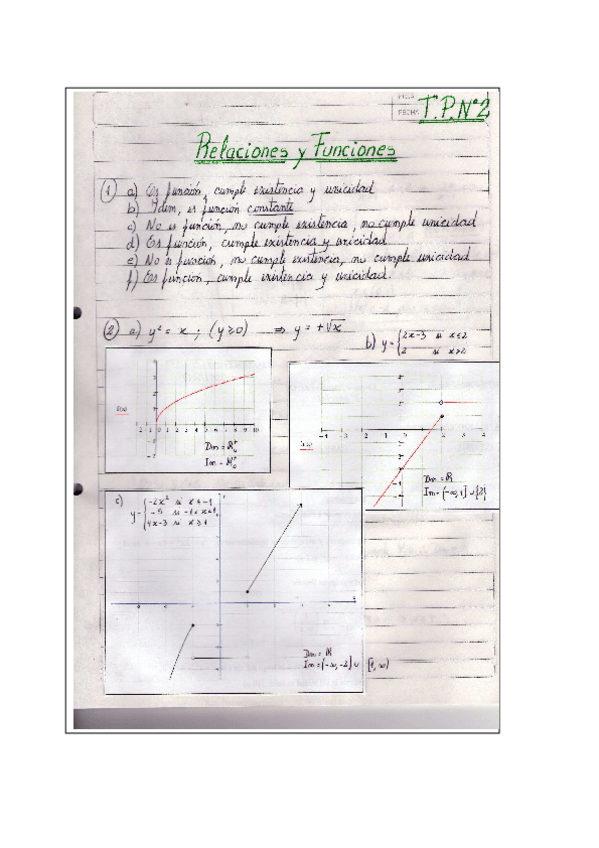 FECHA
T.P.N°2
Relaciones y Funciones
1 a) Es función, cumple existencia y unicidad
b) Idem, es función constante
c) No es función, no cumple existencia, no cumple unicidad
d) Es función, cumple existencia y unicidad
e) No es función, no cumple existencia, no cumple unicidad
f) Es función, cumple existencia y unicidad.
2 a) y² = x ; (y ≥ 0) ⟹ y = +√x
b) y = { 2x-3 si x ≤ 2
2 si x > 2
Dm = ℝ₀⁺
Im = ℝ₀⁺
Dm = ℝ
Im = (-∞, 1] ∪ {2}
c) y = { -2x² si x ≤ -1
-5 si -1 < x < 1
4x-3 si x ≥ 1
Dm = ℝ
Im = (-∞, -2] ∪ [1, ∞)